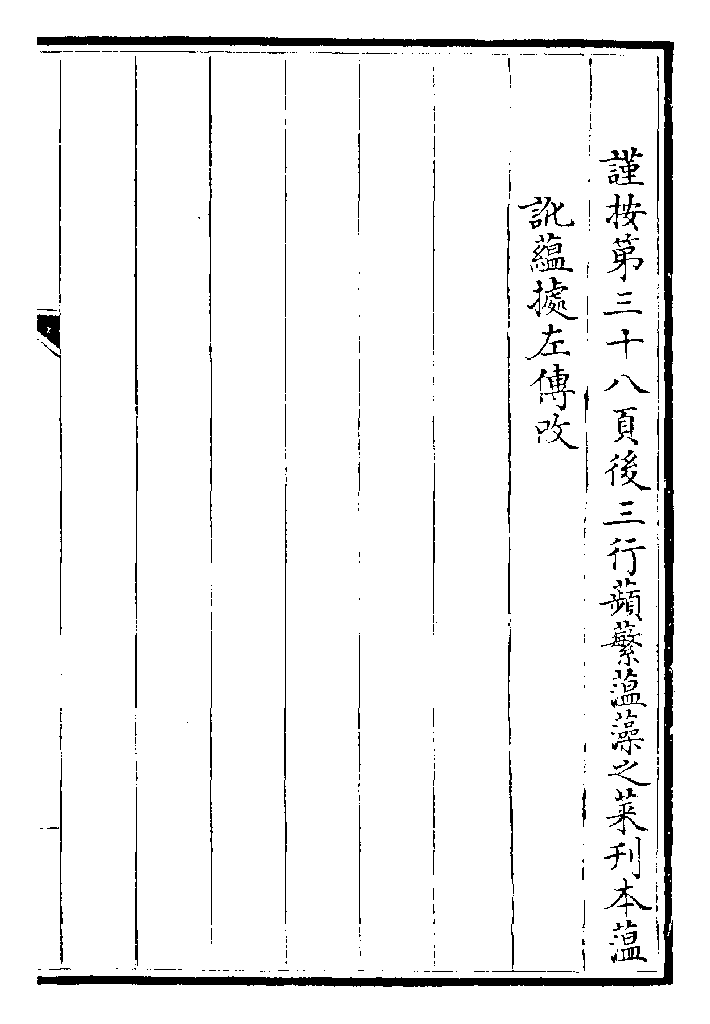 謹按第三十八頁後三行蘋蘩薀藻之菜刋本薀
訛蘊據左傳改